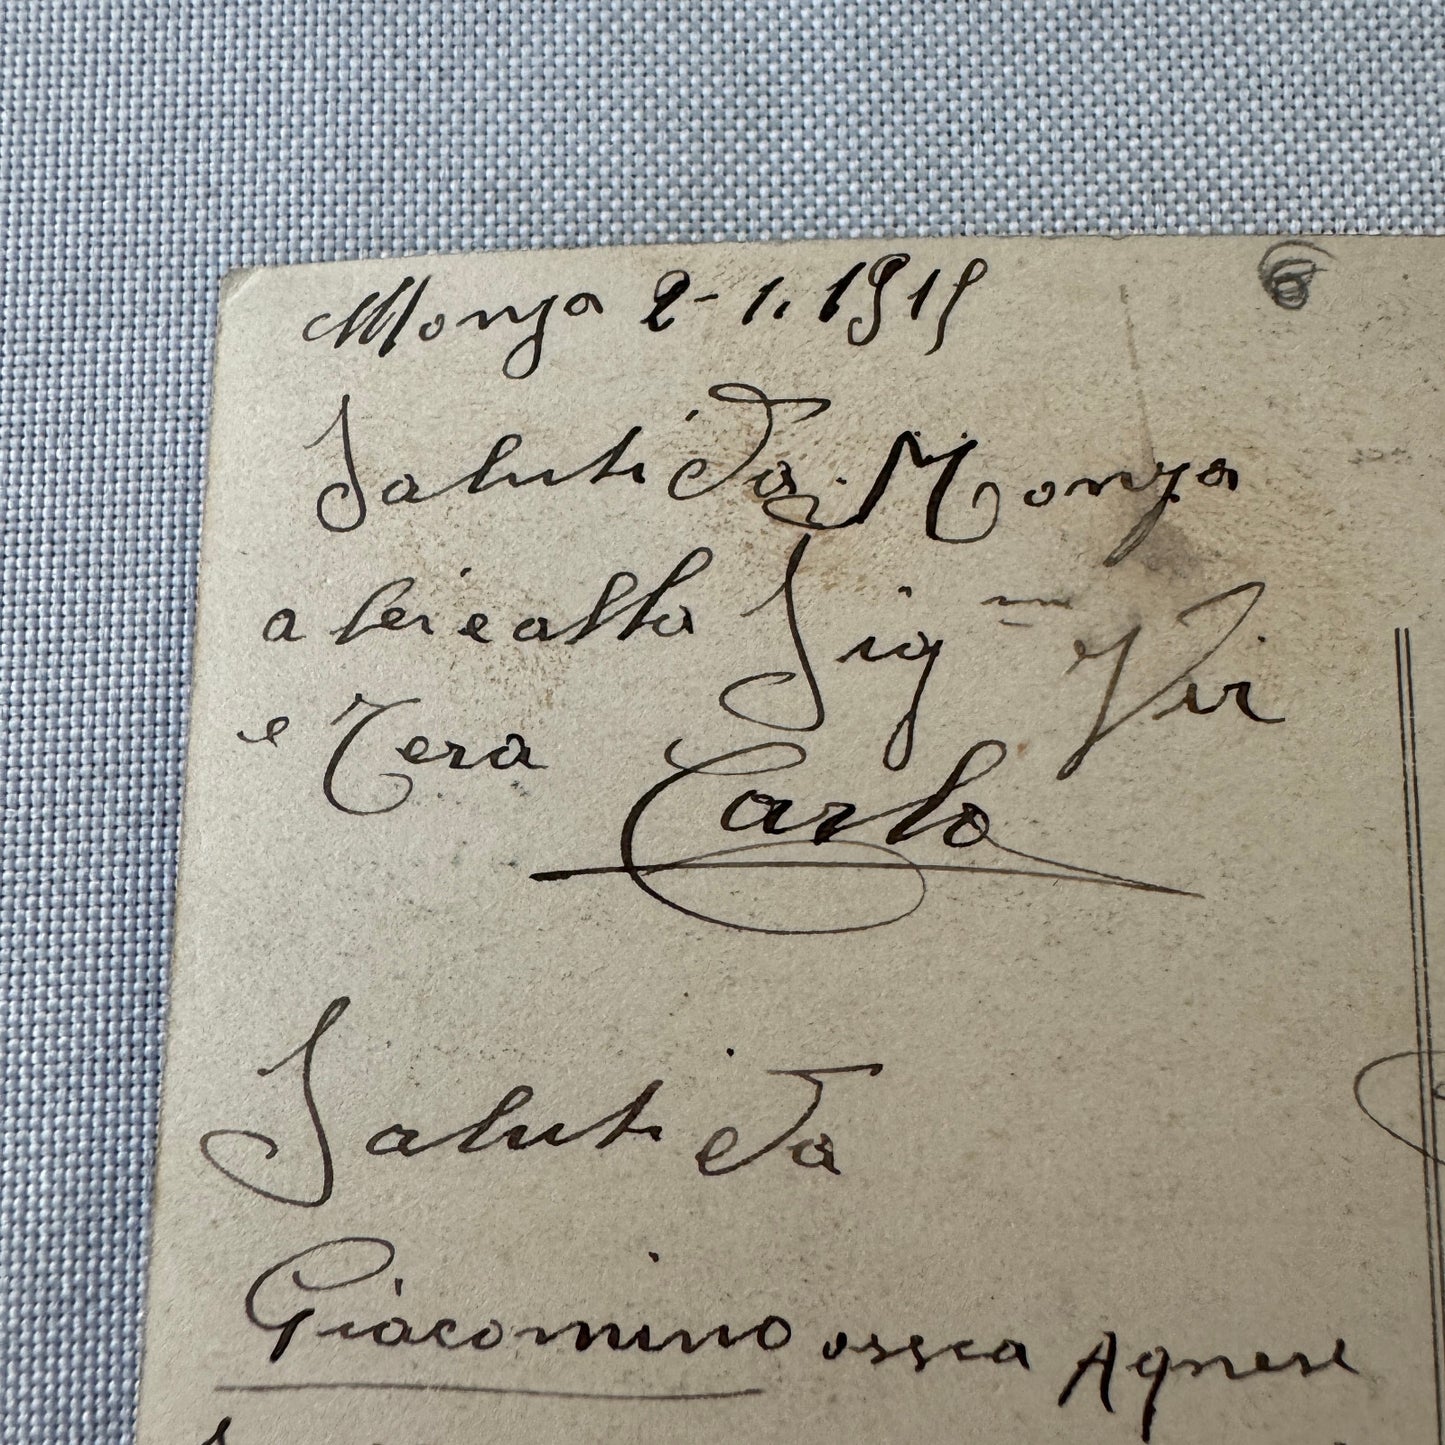 Monza 2-1.1915
Saluti da Monza
a lei e alla Sig na Vir
e Tera
Carlo
Saluti da
Giacomino ossea Agnese